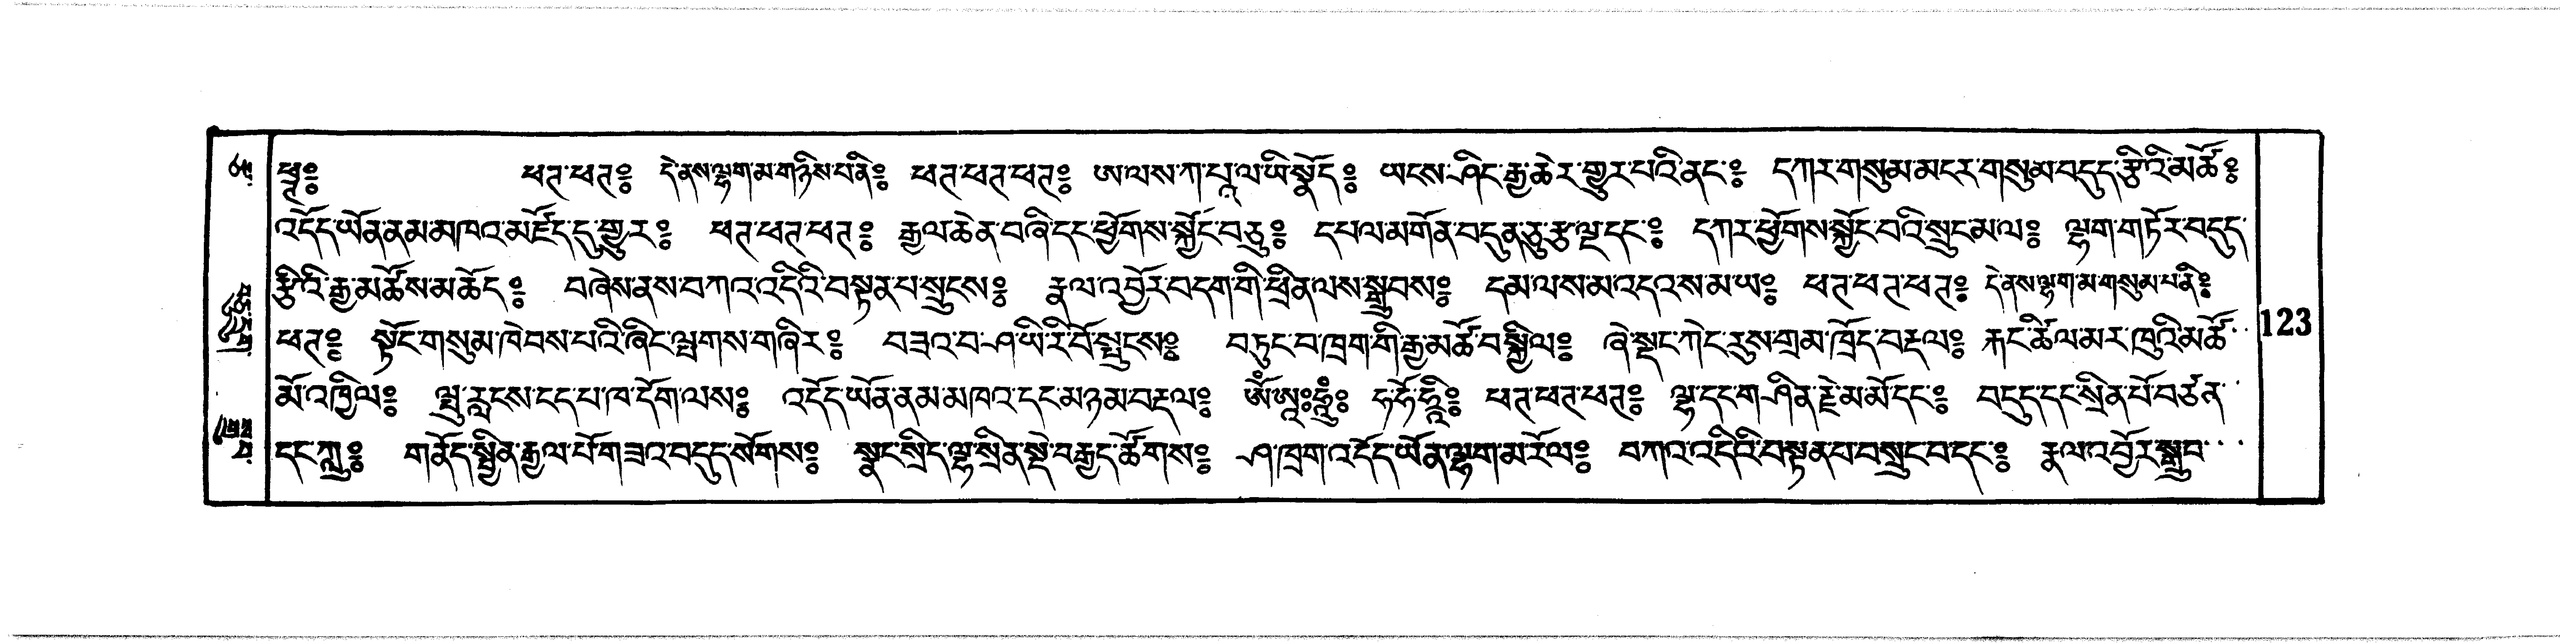 ཕཊ༔ ཕཊ་ཕཊ༔ དེ་ནས་ལྷག་མ་གཉིས་པ་ནི༔ ཕཊ་ཕཊ་ཕཊ༔ ཨ་ལས་ཀ་པཱ་ལ་ཡི་སྣོད༔ ཡངས་ཤིང་རྒྱ་ཆེར་གྱུར་པའི་ནང་༔ དཀར་གསུམ་མངར་གསུམ་བདུད་རྩིའི་མཚོ༔
འདོད་ཡོན་ནམ་མཁའ་མཛོད་དུ་གྱུར༔ ཕཊ་ཕཊ་ཕཊ༔ རྒྱལ་ཆེན་བཞི་དང་ཕྱོགས་སྐྱོང་བཅུ༔ དཔལ་མགོན་བདུན་ཅུ་རྩ་ལྔ་དང་༔ དཀར་ཕྱོགས་སྐྱོང་བའི་སྲུང་མ་ལ༔ ལྷག་གཏོར་བདུད་
རྩིའི་རྒྱ་མཚོས་མཆོད༔ བཞེས་ནས་བཀའ་འདིའི་བསྟན་པ་སྲུངས༔ རྣལ་འབྱོར་བདག་གི་ཕྲིན་ལས་སྒྲུབས༔ དམ་ལས་མ་འདའ་ས་མ་ཡ༔ ཕཊ་ཕཊ་ཕཊ༔ དེ་ནས་ལྷག་མ་གསུམ་པ་ནི༔
ཕཊ༔ སྟོང་གསུམ་ཁེབས་པའི་ཞིང་ལྤགས་གཞིར༔ བཟའ་བ་ཤ་ཡི་རི་བོ་སྤུངས༔ བཏུང་བ་ཁྲག་གི་རྒྱ་མཚོ་བསྐྱིལ༔ ཞེ་སྡང་ཀེང་རུས་གྲམ་ཁྲོད་བརྡལ༔ རྐང་ཚིལ་མར་ཁུའི་མཚོ་
མོ་འཁྱིལ༔ ལྤུ་རླངས་ངད་པ་ཁ་དོག་ལས༔ འདོད་ཡོན་ནམ་མཁའ་དང་མཉམ་བརྡལ༔ ཨོཾ་ཨཱཿཧཱུྃ༔ ཧ་ཧོ་ཧྲཱིཿ ཕཊ་ཕཊ་ཕཊ༔ ལྷ་དང་གཤིན་རྗེ་མ་མོ་དང་༔ བདུད་དང་སྲིན་པོ་བཙན་
དང་ཀླུ༔ གནོད་སྦྱིན་རྒྱལ་པོ་གཟའ་བདུད་སོགས༔ སྣང་སྲིད་ལྷ་སྲིན་སྡེ་བརྒྱད་ཚོགས༔ ཤ་ཁྲག་འདོད་ཡོན་ལྷག་མ་རོལ༔ བཀའ་འདིའི་བསྟན་པ་བསྲུང་བ་དང་༔ རྣལ་འབྱོར་སྒྲུབ་
123